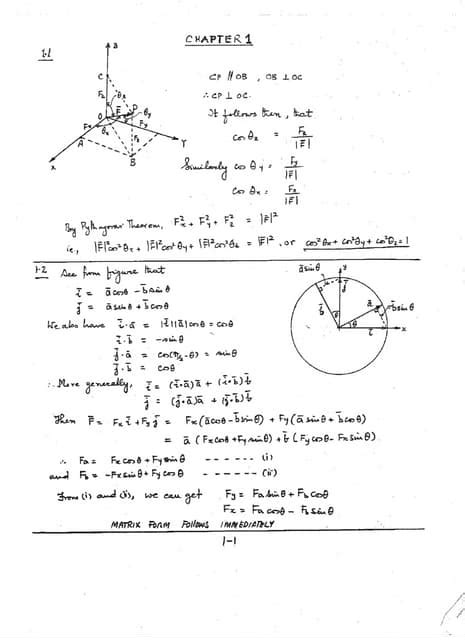 CHAPTER 1
1.1
CP ∥ OB , OB ⊥ OC
∴ CP ⊥ OC
It follows then, that
cos θz = Fz / |F̄|
Similarly cos θy = Fy / |F̄|
cos θx = Fx / |F̄|
By Pythagoras Theorem, Fx² + Fy² + Fz² = |F̄|²
i.e., |F̄|²cos²θx + |F̄|²cos²θy + |F̄|²cos²θz = |F̄|², or cos²θx + cos²θy + cos²θz = 1
1.2 See from figure that
ī = ā cosθ - b̄ sinθ
j̄ = ā sinθ + b̄ cosθ
We also have ī·ā = |ī||ā| cosθ = cosθ
ī·b̄ = -sinθ
j̄·ā = cos(π/2 - θ) = sinθ
j̄·b̄ = cosθ
∴ More generally, ī = (ī·ā)ā + (ī·b̄)b̄
j̄ = (j̄·ā)ā + (j̄·b̄)b̄
Then F̄ = Fx ī + Fy j̄ = Fx(ā cosθ - b̄ sinθ) + Fy(ā sinθ + b̄ cosθ)
= ā (Fx cosθ + Fy sinθ) + b̄ (Fy cosθ - Fx sinθ)
∴ Fa = Fx cosθ + Fy sinθ ------ (i)
and Fb = -Fx sinθ + Fy cosθ ------ (ii)
From (i) and (ii), we can get Fy = Fa sinθ + Fb cosθ
Fx = Fa cosθ - Fb sinθ
MATRIX FORM FOLLOWS IMMEDIATELY
1-1